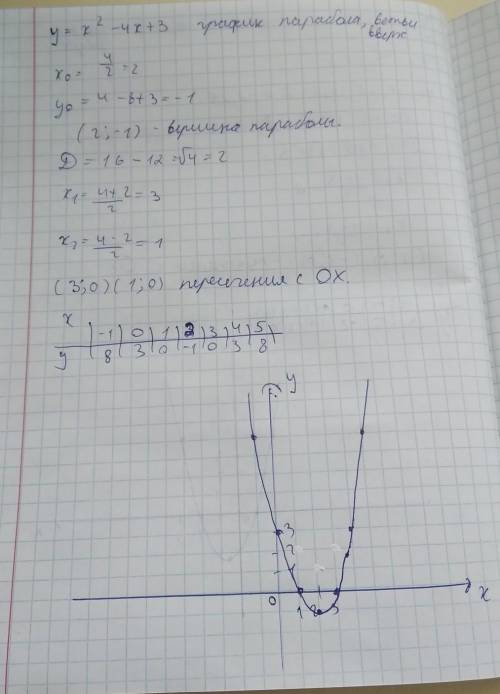 y = x² - 4x + 3 график парабола, ветви
вверх
x₀ = 4/2 = 2
y₀ = 4 - 8 + 3 = -1
(2; -1) - вершина параболы.
D = 16 - 12 = √4 = 2
x₁ = (4+2)/2 = 3
x₂ = (4-2)/2 = 1
(3; 0) (1; 0) пересечения с OX.
x | -1 | 0 | 1 | 2 | 3 | 4 | 5 |
y | 8 | 3 | 0 | -1 | 0 | 3 | 8
y
3
2
1
0 1 2 3 x